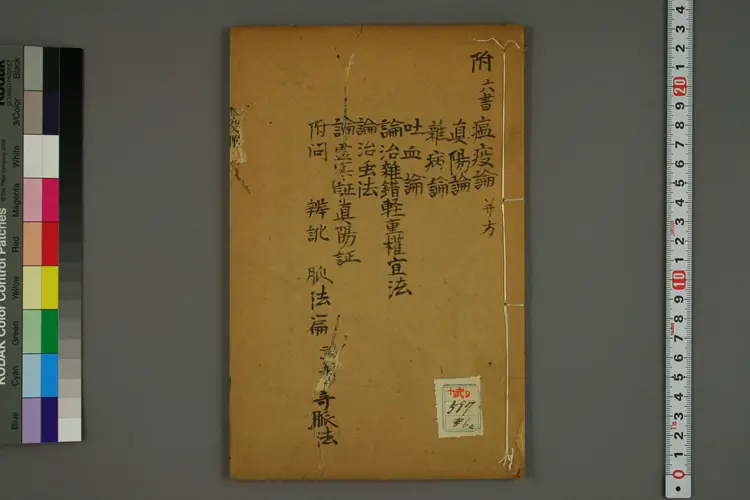 附 六書 瘟疫論 并方
眞陽論
雜病論
吐血論
論治雜錯軽重權宜法
論治虫法
論虚実証眞陽証
附问 辨訛 脉法篇 奇脈法
597
KODAK Color Control Patches
Blue
Cyan
Green
Yellow
Red
Magenta
White
3/Color
Black
0 1 2 3 4 5 6 7 8 9 10 1 2 3 4 5 6 7 8 9 20 1 2 3 4